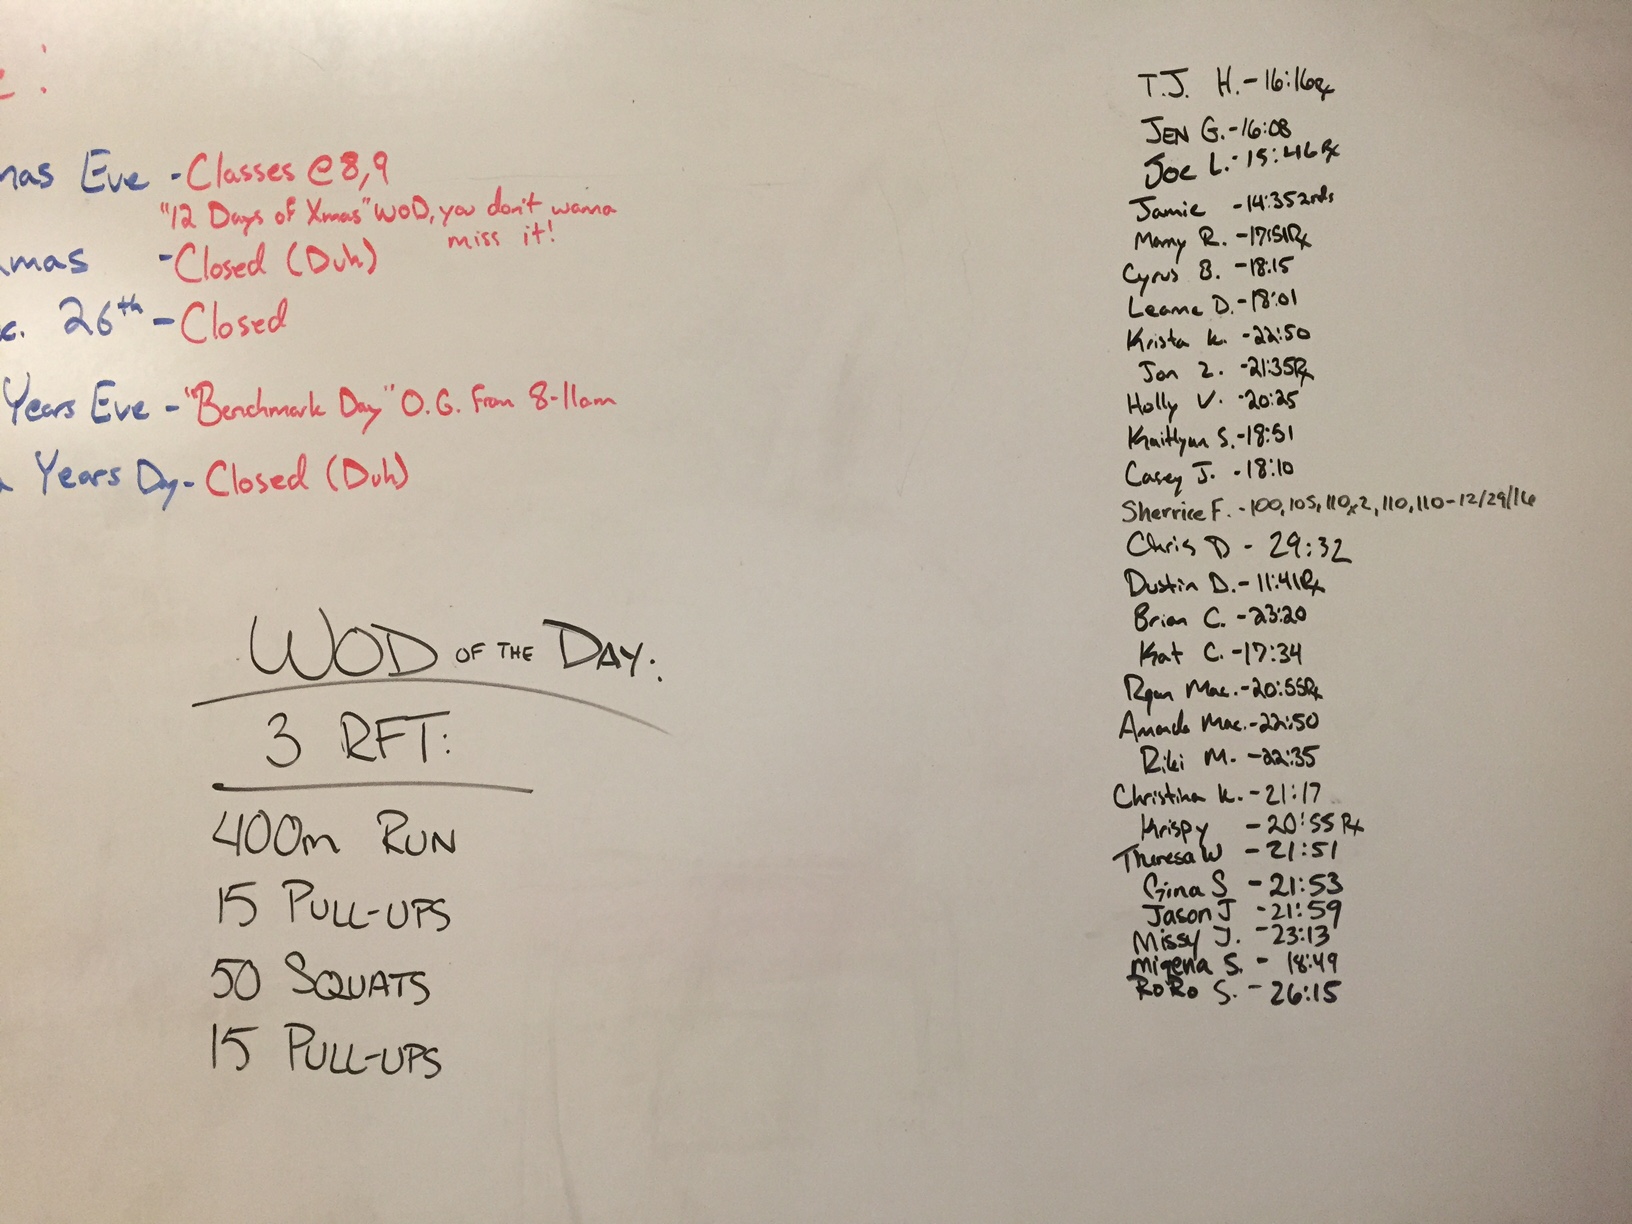 e:
mas Eve - Classes @ 8,9
"12 Days of Xmas" WOD, you don't wanna
miss it!
mas - Closed (Duh)
c. 26th - Closed
Years Eve - "Benchmark Day" O.G. From 8-11am
Years Dy - Closed (Duh)
WOD OF THE DAY:
3 RFT:
400m RUN
15 PULL-UPS
50 SQUATS
15 PULL-UPS
T.J. H. - 16:16 Rx
JEN G. - 16:08
Joe L. - 15:46 Rx
Jamie - 14:35 2rds
Manny R. - 17:51 Rx
Cyrus B. - 18:15
Leanne D. - 18:01
Krista K. - 22:50
Jon Z. - 21:35 Rx
Holly V. - 20:25
Kaitlynn S. - 18:51
Casey J. - 18:10
Sherrice F. - 100, 105, 110x2, 110, 110 - 12/29/16
Chris D - 29:32
Dustin D. - 11:41 Rx
Brian C. - 23:20
Kat C. - 17:34
Ryan Mac. - 20:55 Rx
Amanda Mac. - 22:50
Riki M. - 22:35
Christina K. - 21:17
Krispy - 20:55 Rx
Theresa W - 21:51
Gina S - 21:53
Jason J - 21:59
Missy J. - 23:13
Migena S. - 18:49
RoRo S. - 26:15